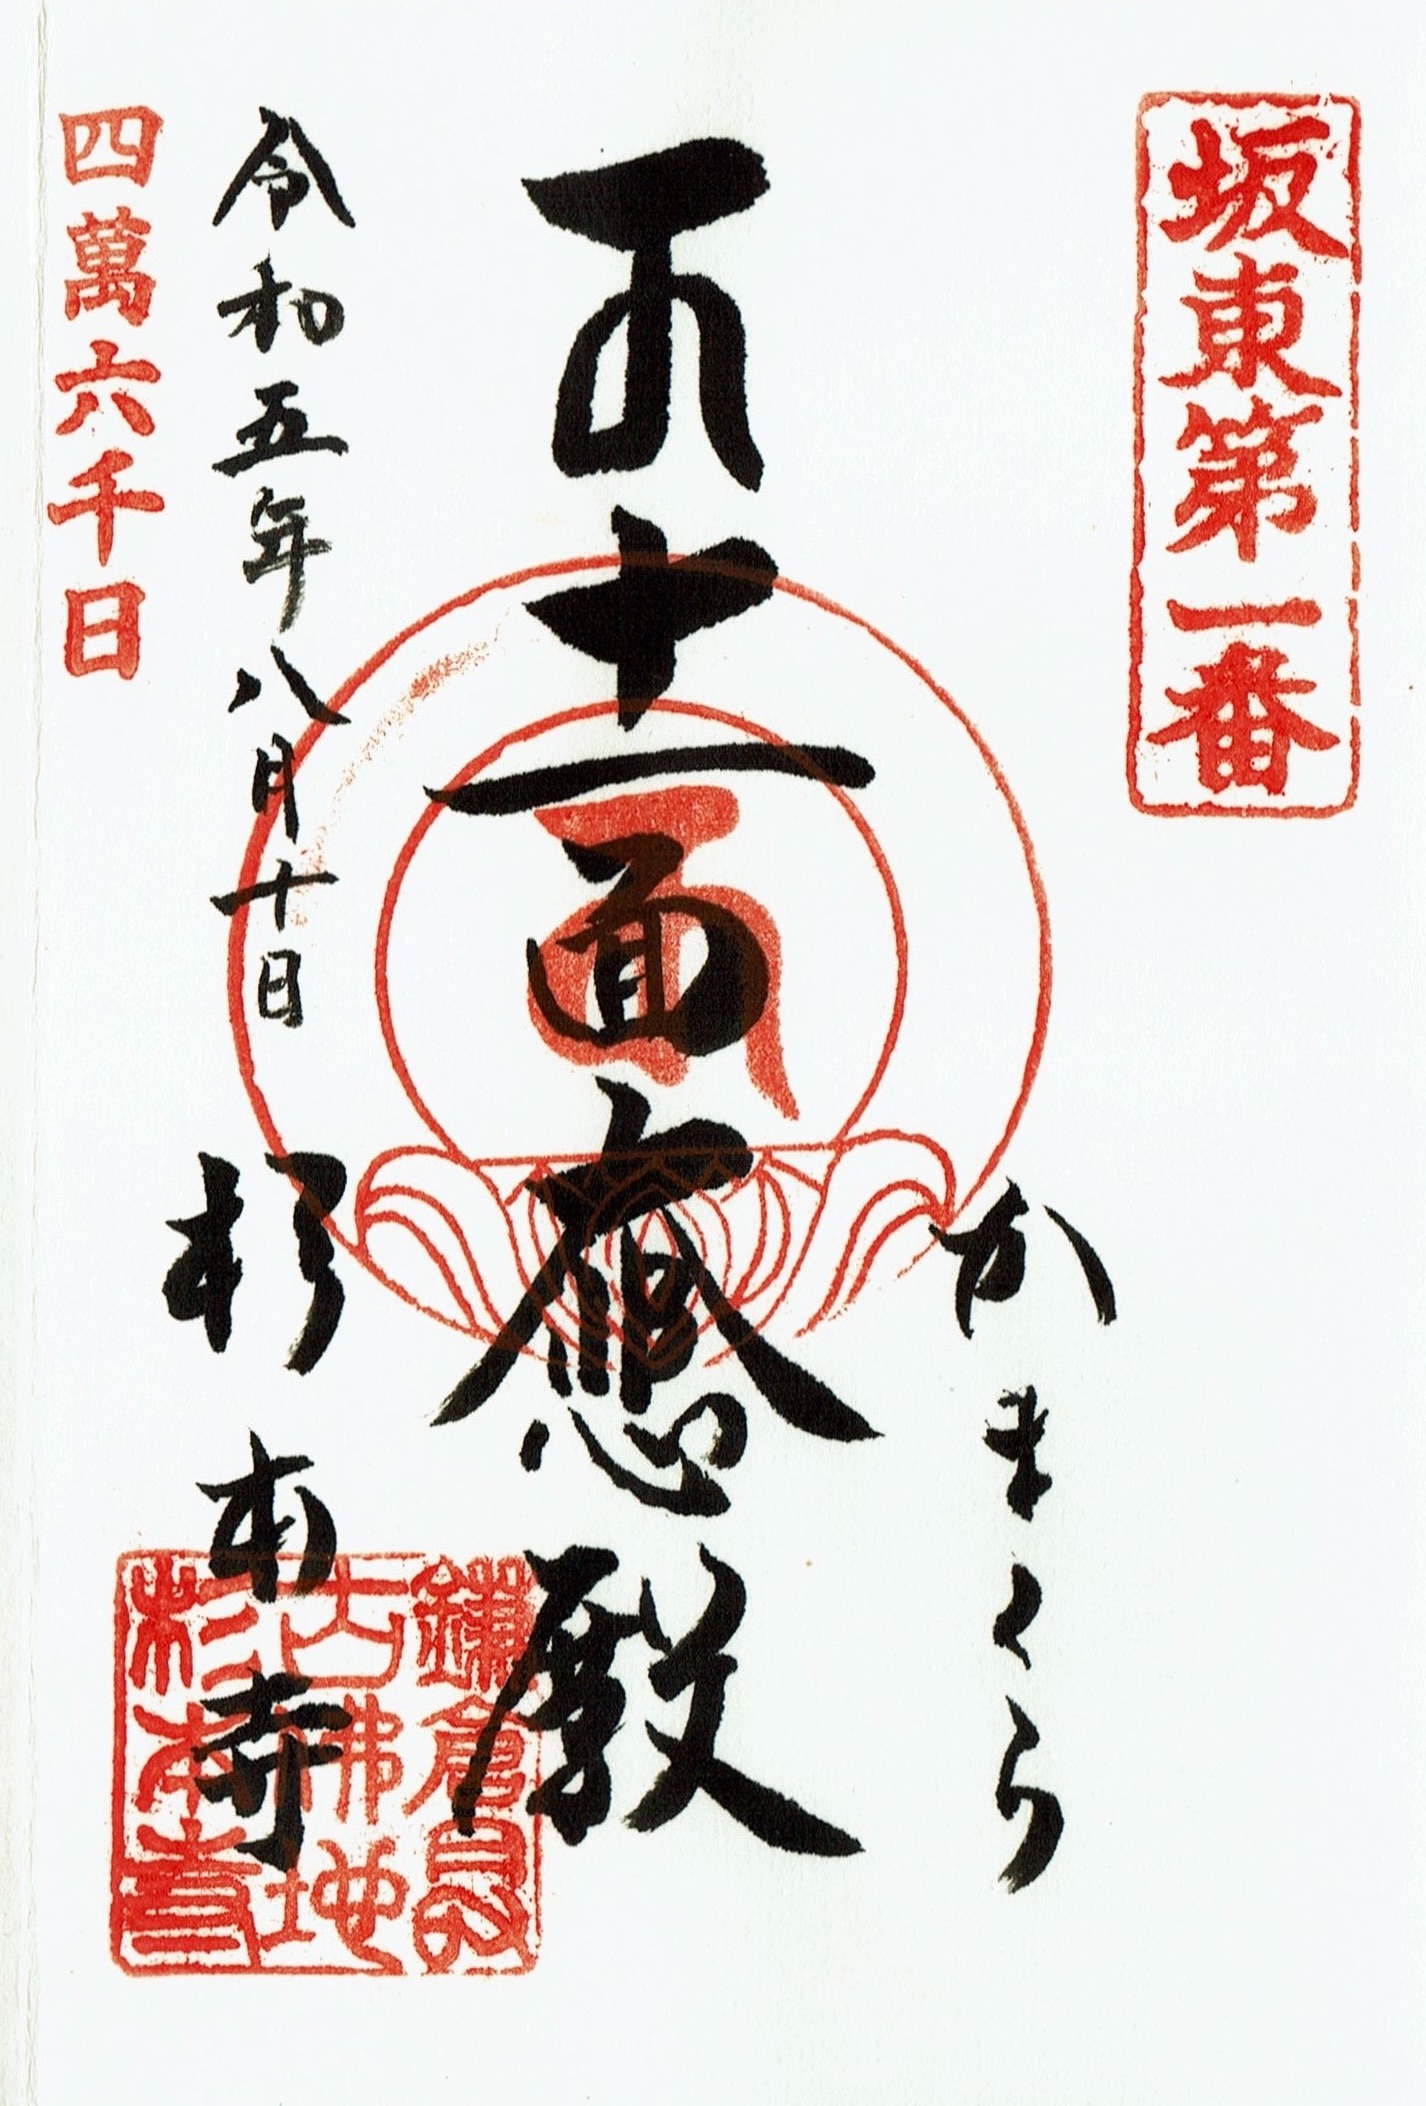 坂東第一番
かまくら
十一面大悲殿
令和五年八月十日
杉本寺
四萬六千日
鎌倉最
古佛地
杉本寺